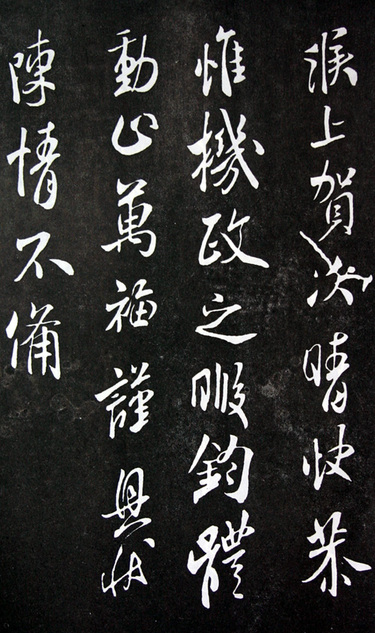 上賀次晴快恭
惟機政之暇鈞體
動止萬福謹具狀
陳情不備